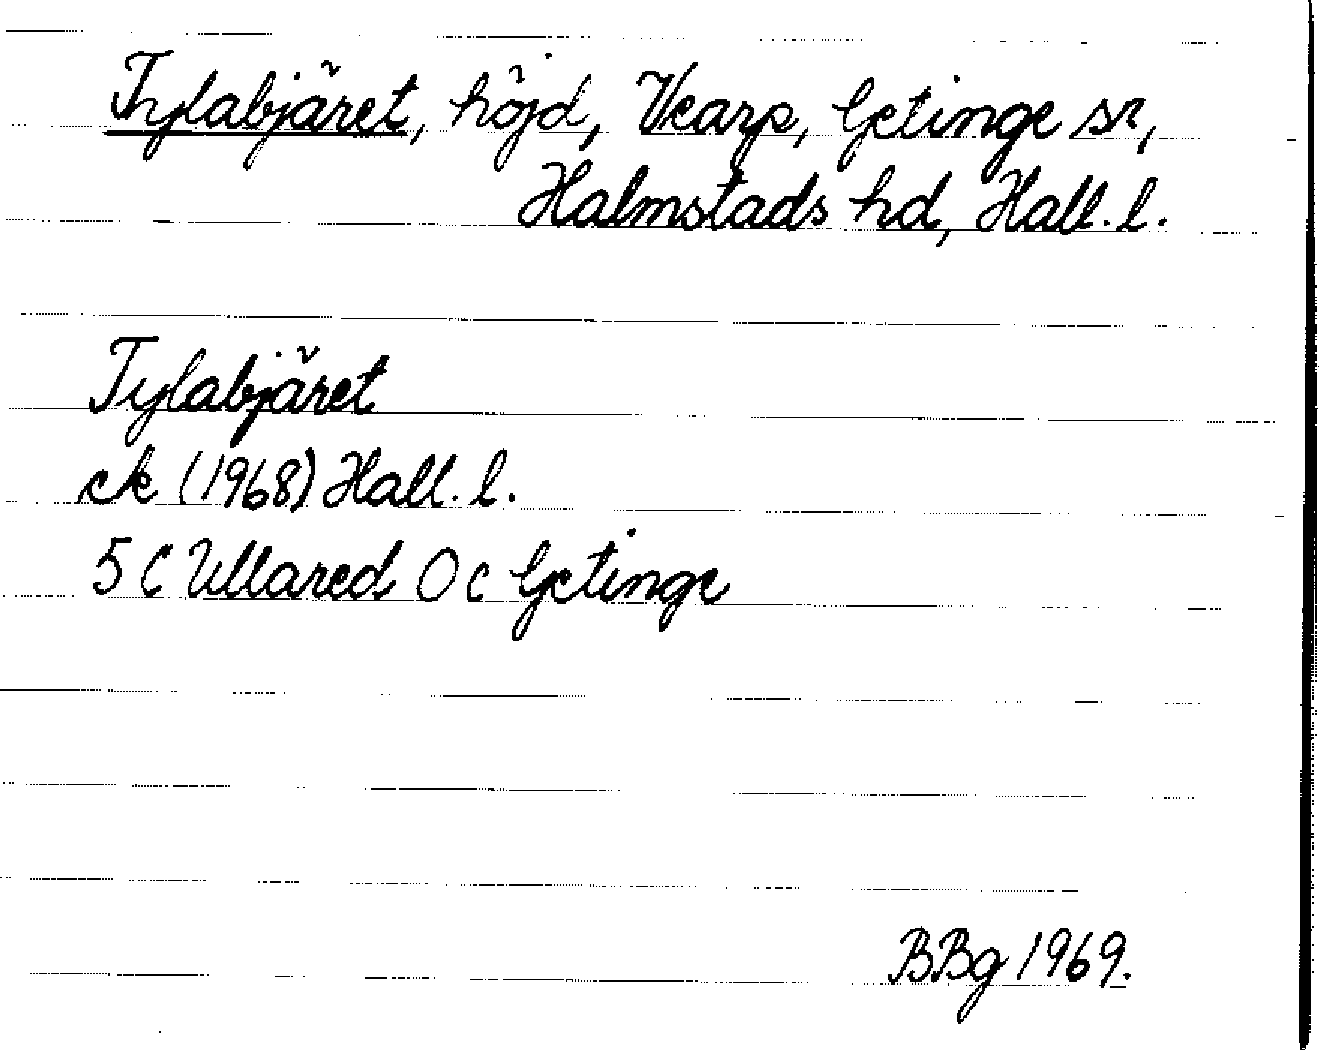 Tylabjäret, höjd, Vearp, Getinge sn,
Halmstads hd, Hall. l.
Tylabjäret
ek (1968) Hall. l.
5 C Ullared O c Getinge
BBg 1969.